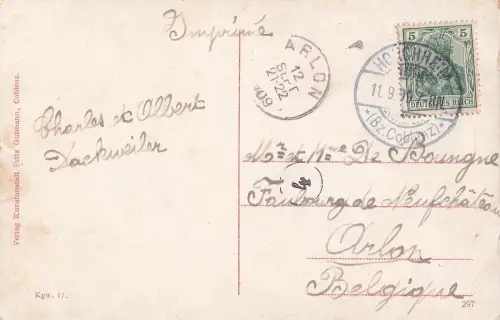 Imprimé
ARLON
12
SEPT
21-22
09
5
DEUTSCHES REICH
HORCHHEIM
11.9.09
*(Bz. Coblenz)*
Charles et Albert
Dackweiler
Mr et Mme De Bourgne
4
Faubourg de Neufchâteau
Arlon
Belgique
Verlag Kunstanstalt Fritz Gutmann, Coblenz.
Kgw. 17.
287